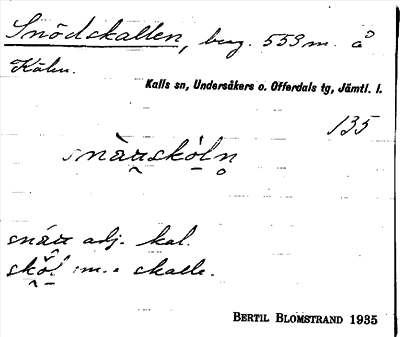 Snödskallen, berg. 559 m. å
Kälen.
Kalls sn, Undersåkers o. Offerdals tg, Jämtl. l.
135
adj. kal.
m. = skalle.
BERTIL BLOMSTRAND 1935